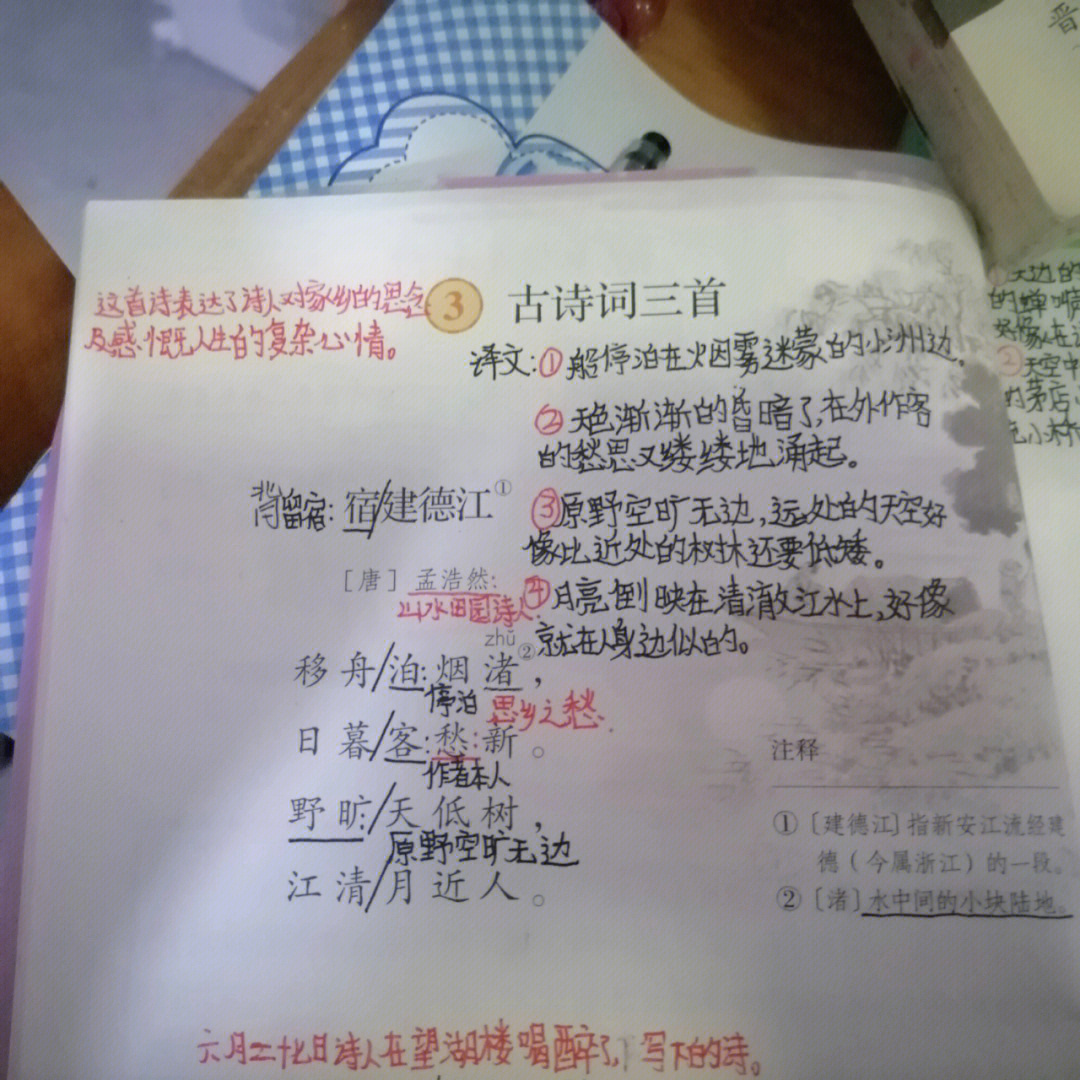 这首诗表达了诗人对家乡的思念
及感慨人生的复杂心情。
3 古诗词三首
译文:①船停泊在烟雾迷蒙的小洲边。
②天色渐渐的昏暗了,在外作客
的愁思又缕缕地涌起。
③原野空旷无边,远处的天空好
像比近处的树林还要低矮。
④月亮倒映在清澈江水上,好像
就在人身边似的。
留宿:宿/建德江①
[唐] 孟浩然:
山水田园诗人.
zhǔ
移舟/泊:烟渚②,
停泊 思乡之愁.
日暮/客:愁:新。
作者本人
野旷:/天低树,
原野空旷无边
江清/月近人。
注释
①[建德江]指新安江流经建
德(今属浙江)的一段。
②[渚]水中间的小块陆地。
六月二十七日诗人在望湖楼喝醉了,写下的诗。
晋
天边的
的蝉鸣
②天空中
的茅店